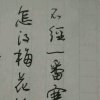 不經一番寒
怎得梅花